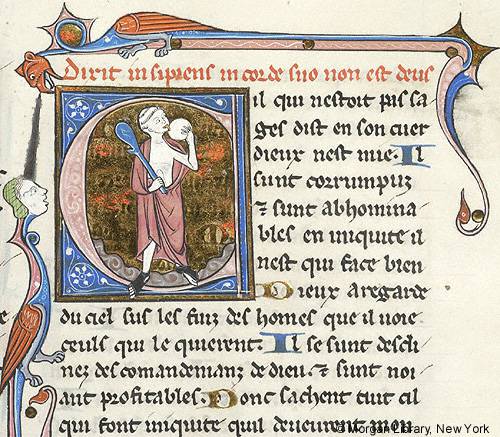 Dixit insipiens in corde suo non est deus
il qui nestoit pas sa
ges dist en son cuer
dieux nest mie. Il
sunt corrumpuz
⁊ sunt abhomina
bles en iniquite il
nest qui face bien
Dieux aregarde
du ciel sus les fiuz des homes que il uoie
ceuls qui le quierent. Il se sunt descli
nez des comandemanz de dieu. ⁊ sunt noi
ant profitables. Donc sachent tuit cil
qui font iniquite quil deueurent mon
© Morgan Library, New York